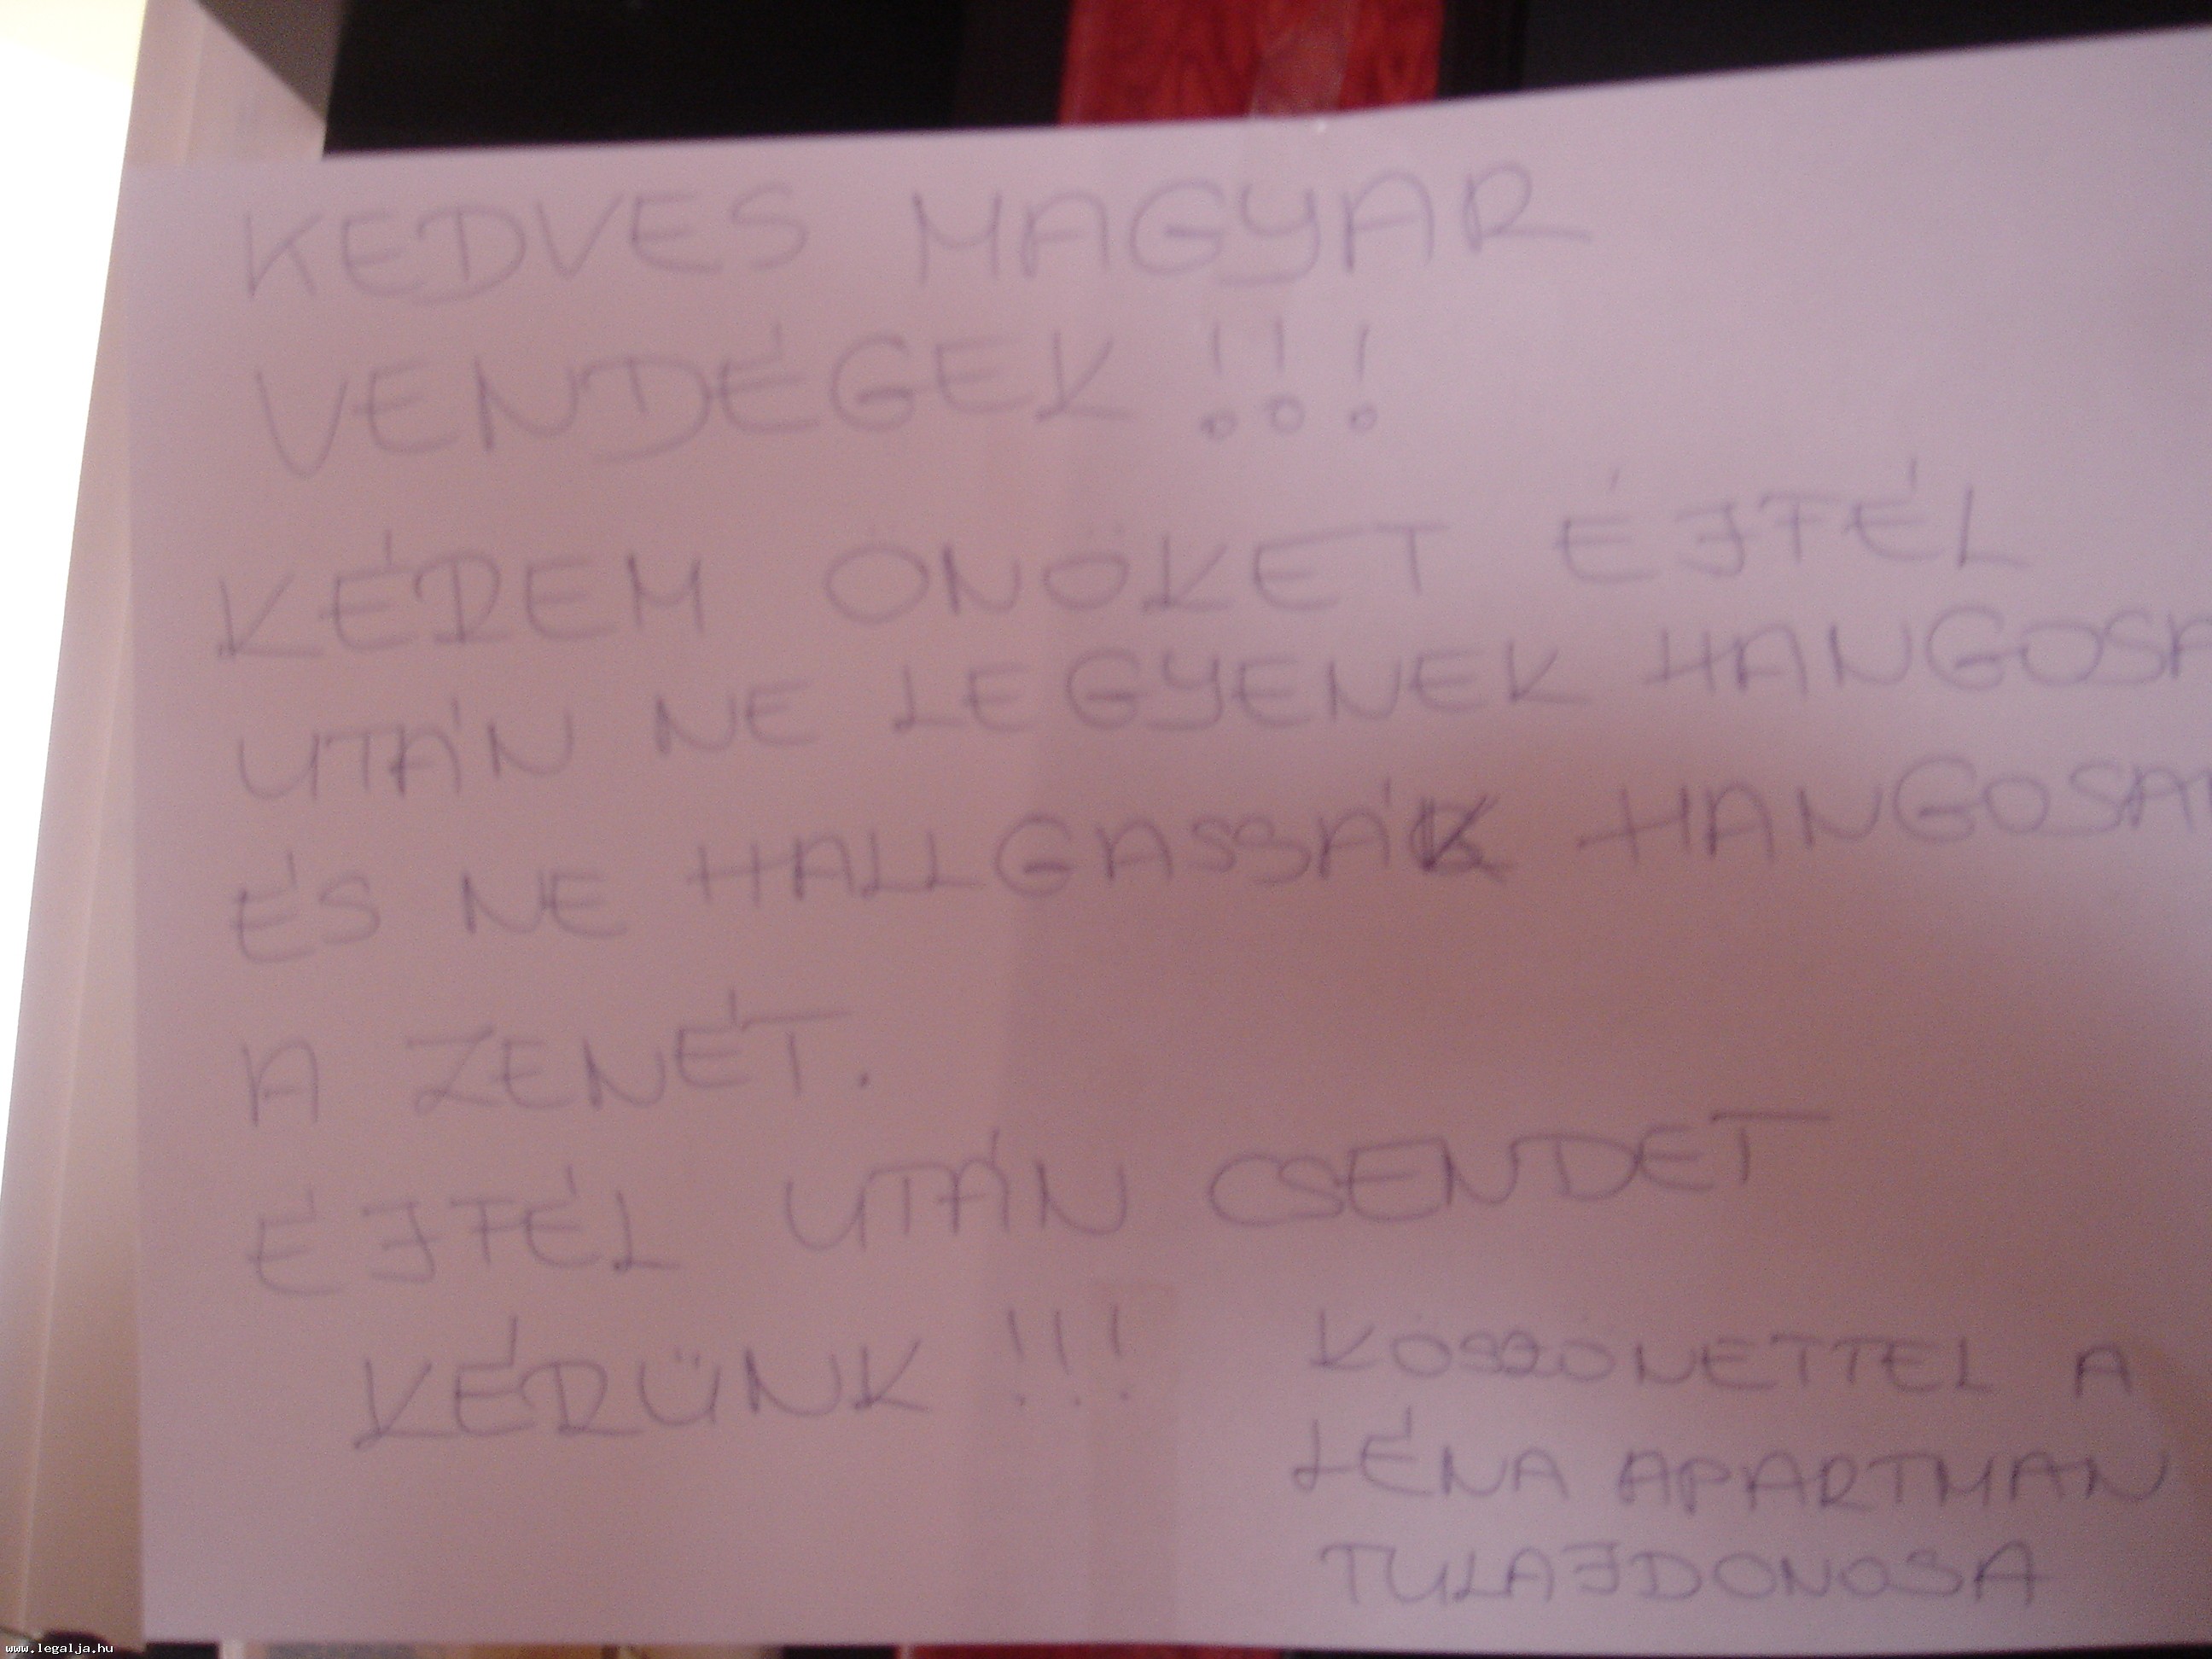 KEDVES MAGYAR
VENDÉGEK !!!
KÉREM ÖNÖKET ÉJFÉL
UTÁN NE LEGYENEK HANGOSA
ÉS NE HALLGASSÁK HANGOSAN
A ZENÉT.
ÉJFÉL UTÁN CSENDET
KÉRÜNK !!!
KÖSZÖNETTEL A
LÉNA APARTMAN
TULAJDONOSA
www.legalja.hu